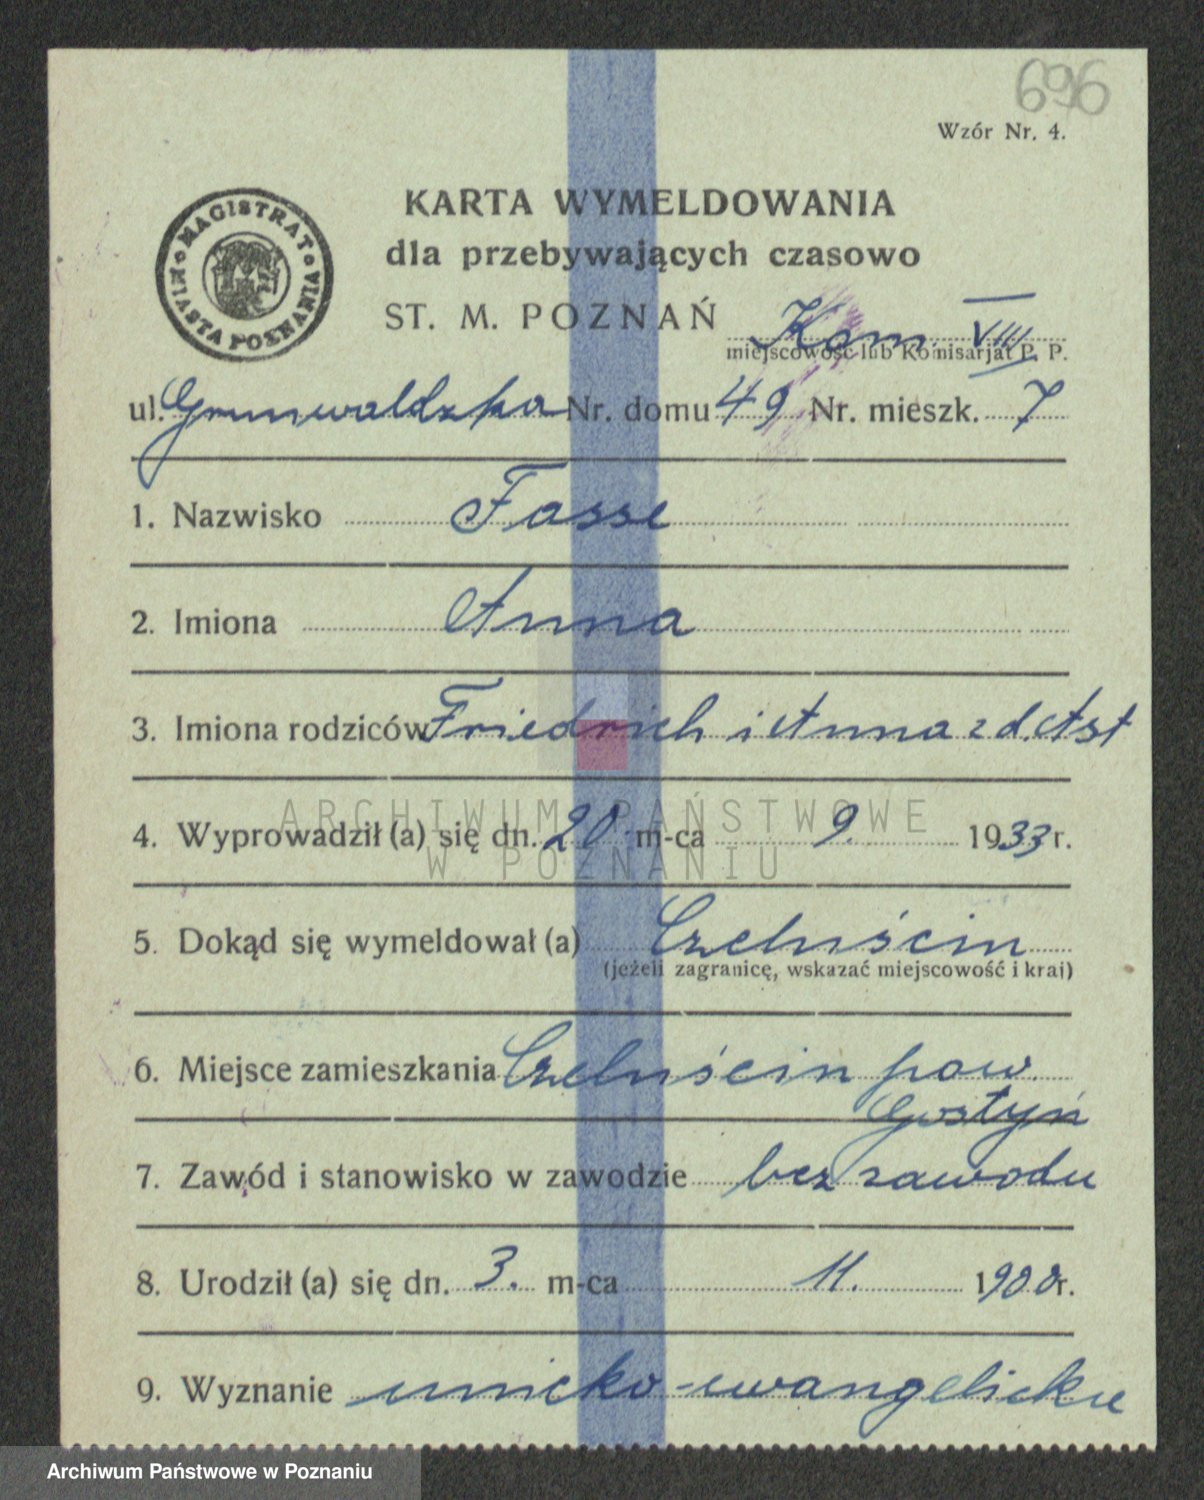 696
Wzór Nr. 4.
MAGISTRAT MIASTA POZNANIA
KARTA WYMELDOWANIA
dla przebywających czasowo
ST. M. POZNAŃ Kom. VIII
miejscowość lub Komisarjat P. P.
ul. Grunwaldzka Nr. domu 49 Nr. mieszk. 7
1. Nazwisko Fasse
2. Imiona Anna
3. Imiona rodziców Friedrich i Anna z d. Ast
ARCHIWUM PAŃSTWOWE
4. Wyprowadził (a) się dn. 20 m-ca 9. 1933 r.
W POZNANIU
5. Dokąd się wymeldował (a) Czeluścin
(jeżeli zagranicę, wskazać miejscowość i kraj)
6. Miejsce zamieszkania Czeluścin pow.
Gostyń
7. Zawód i stanowisko w zawodzie bez zawodu
8. Urodził (a) się dn. 3. m-ca 11. 1900 r.
9. Wyznanie unicko-ewangelickie
Archiwum Państwowe w Poznaniu